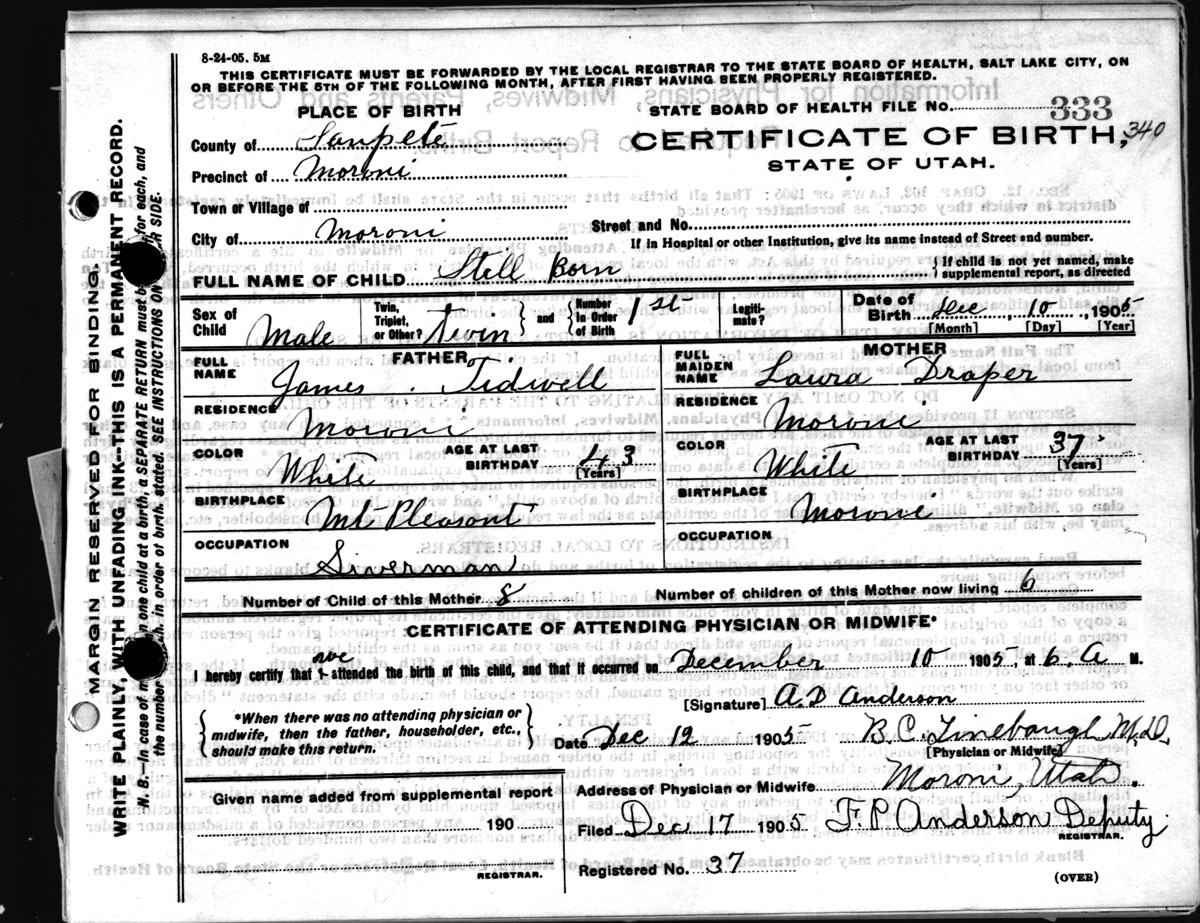 8-24-05. 5M
THIS CERTIFICATE MUST BE FORWARDED BY THE LOCAL REGISTRAR TO THE STATE BOARD OF HEALTH, SALT LAKE CITY, ON
OR BEFORE THE 5TH OF THE FOLLOWING MONTH, AFTER FIRST HAVING BEEN PROPERLY REGISTERED.
PLACE OF BIRTH
STATE BOARD OF HEALTH FILE No. 333
County of Sanpete
CERTIFICATE OF BIRTH, 340
Precinct of Moroni
STATE OF UTAH.
Town or Village of
City of Moroni Street and No.
If in Hospital or other Institution, give its name instead of Street and number.
FULL NAME OF CHILD Still Born { If child is not yet named, make supplemental report, as directed
Sex of Child Male Twin, Triplet, or Other? Twin } and { Number in Order of Birth 1st Legitimate? Date of Birth Dec 10, 1905
[Month] [Day] [Year]
FATHER MOTHER
FULL NAME James Tidwell FULL MAIDEN NAME Laura Draper
RESIDENCE Moroni RESIDENCE Moroni
COLOR White AGE AT LAST BIRTHDAY 43 [Years] COLOR White AGE AT LAST BIRTHDAY 37 [Years]
BIRTHPLACE Mt Pleasant BIRTHPLACE Moroni
OCCUPATION OCCUPATION
Number of Child of this Mother 8 Number of children of this Mother now living 6
CERTIFICATE OF ATTENDING PHYSICIAN OR MIDWIFE*
we
I hereby certify that I attended the birth of this child, and that it occurred on December 10 1905, at 6. A M.
[Signature] A. D Anderson
{ *When there was no attending physician or midwife, then the father, householder, etc., should make this return. }
Date Dec 12 1905 B. C. Linebaugh M.D.
[Physician or Midwife]
Given name added from supplemental report
Address of Physician or Midwife Moroni, Utah.
190
Filed Dec 17 1905 F. P. Anderson Deputy
REGISTRAR.
REGISTRAR.
Registered No. 37
(OVER)
MARGIN RESERVED FOR BINDING.
WRITE PLAINLY, WITH UNFADING INK—THIS IS A PERMANENT RECORD.
N. B.—In case of m one child at a birth, a SEPARATE RETURN must b for each, and
the number ch, in order of birth, stated. SEE INSTRUCTIONS ON R SIDE.